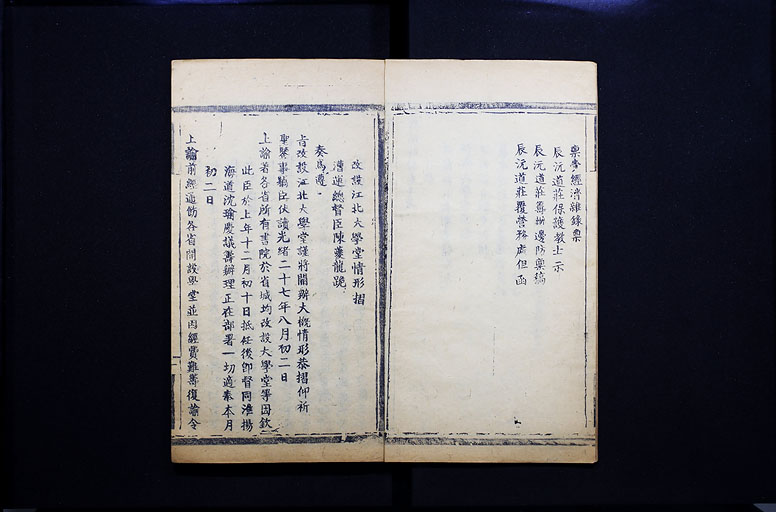 稟李經濟雜錄稟
辰沅道莊保護教士示
辰沅道莊籌辦邊防稟稿
辰沅道莊覆營務處但函
改設江北大學堂情形摺
漕運總督臣陳夔龍跪
奏為遵
旨改設江北大學堂謹將開辦大概情形恭摺仰祈
聖鑒事竊臣伏讀光緒二十七年八月初二日
上諭著各省所有書院於省城均改設大學堂等因欽
此臣於上年十二月初十日抵任後即督同淮揚
海道沈瑜慶議籌辦理正在部署一切適奉本月
初二日
上諭前經通飭各省開設學堂並因經費難籌復諭令